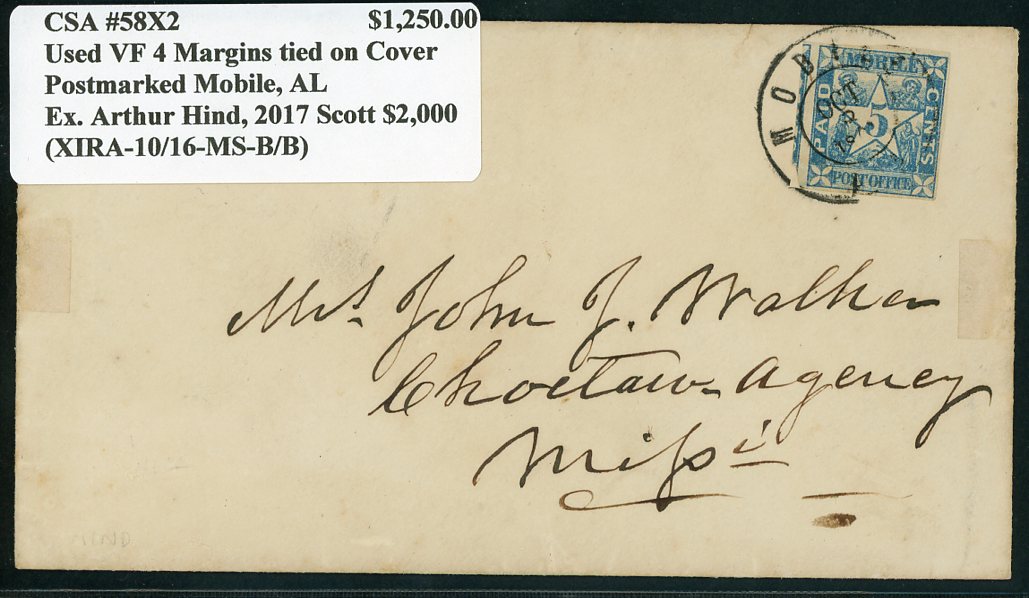 CSA #58X2 $1,250.00
Used VF 4 Margins tied on Cover
Postmarked Mobile, AL
Ex. Arthur Hind, 2017 Scott $2,000
(XIRA-10/16-MS-B/B)
MOBILE
OCT
MOBILE
PAID
5
CENTS
POST OFFICE
Mrs. John J. Walker
Choctaw Agency
Missi